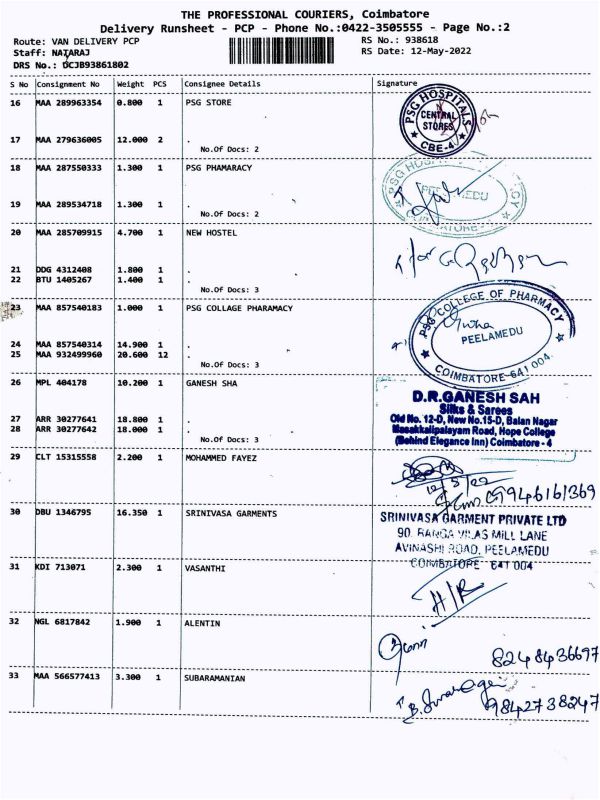 THE PROFESSIONAL COURIERS, Coimbatore
Delivery Runsheet - PCP - Phone No.:0422-3505555 - Page No.:2
Route: VAN DELIVERY PCP
RS No.: 938618
Staff: NATARAJ
RS Date: 12-May-2022
DRS No.: DCJB93861802
S No Consignment No Weight PCS Consignee Details Signature
16 MAA 289963354 0.800 1 PSG STORE
PSG HOSPITALS
CENTRAL
STORES
CBE-4
17 MAA 279636005 12.000 2 .
No.Of Docs: 2
18 MAA 287550333 1.300 1 PSG PHAMARACY
PEELAMEDU
19 MAA 289534718 1.300 1 .
No.Of Docs: 2
20 MAA 285709915 4.700 1 NEW HOSTEL
21 DDG 4312408 1.800 1 .
22 BTU 1405267 1.400 1 .
No.Of Docs: 3
23 MAA 857540183 1.000 1 PSG COLLAGE PHARAMACY
PSG COLLEGE OF PHARMACY
PEELAMEDU
COIMBATORE-641 004.
24 MAA 857540314 14.900 1 .
25 MAA 932499960 20.600 12 .
No.Of Docs: 3
26 MPL 404178 10.200 1 GANESH SHA
D.R.GANESH SAH
Silks & Sarees
Old No. 12-D, New No.15-D, Balan Nagar
Masakkalipalayam Road, Hope College
(Behind Elegance Inn) Coimbatore - 4
27 ARR 30277641 18.800 1 .
28 ARR 30277642 18.000 1 .
No.Of Docs: 3
29 CLT 15315558 2.200 1 MOHAMMED FAYEZ
12/5/22
9946161369
30 DBU 1346795 16.350 1 SRINIVASA GARMENTS
SRINIVASA GARMENT PRIVATE LTD
90, RANGA VILAS MILL LANE
AVINASHI ROAD, PEELAMEDU
COIMBATORE 641 004
31 KDI 713071 2.300 1 VASANTHI
H/R
32 NGL 6817842 1.900 1 ALENTIN
8248436697
33 MAA 566577413 3.300 1 SUBARAMANIAN
9842738247